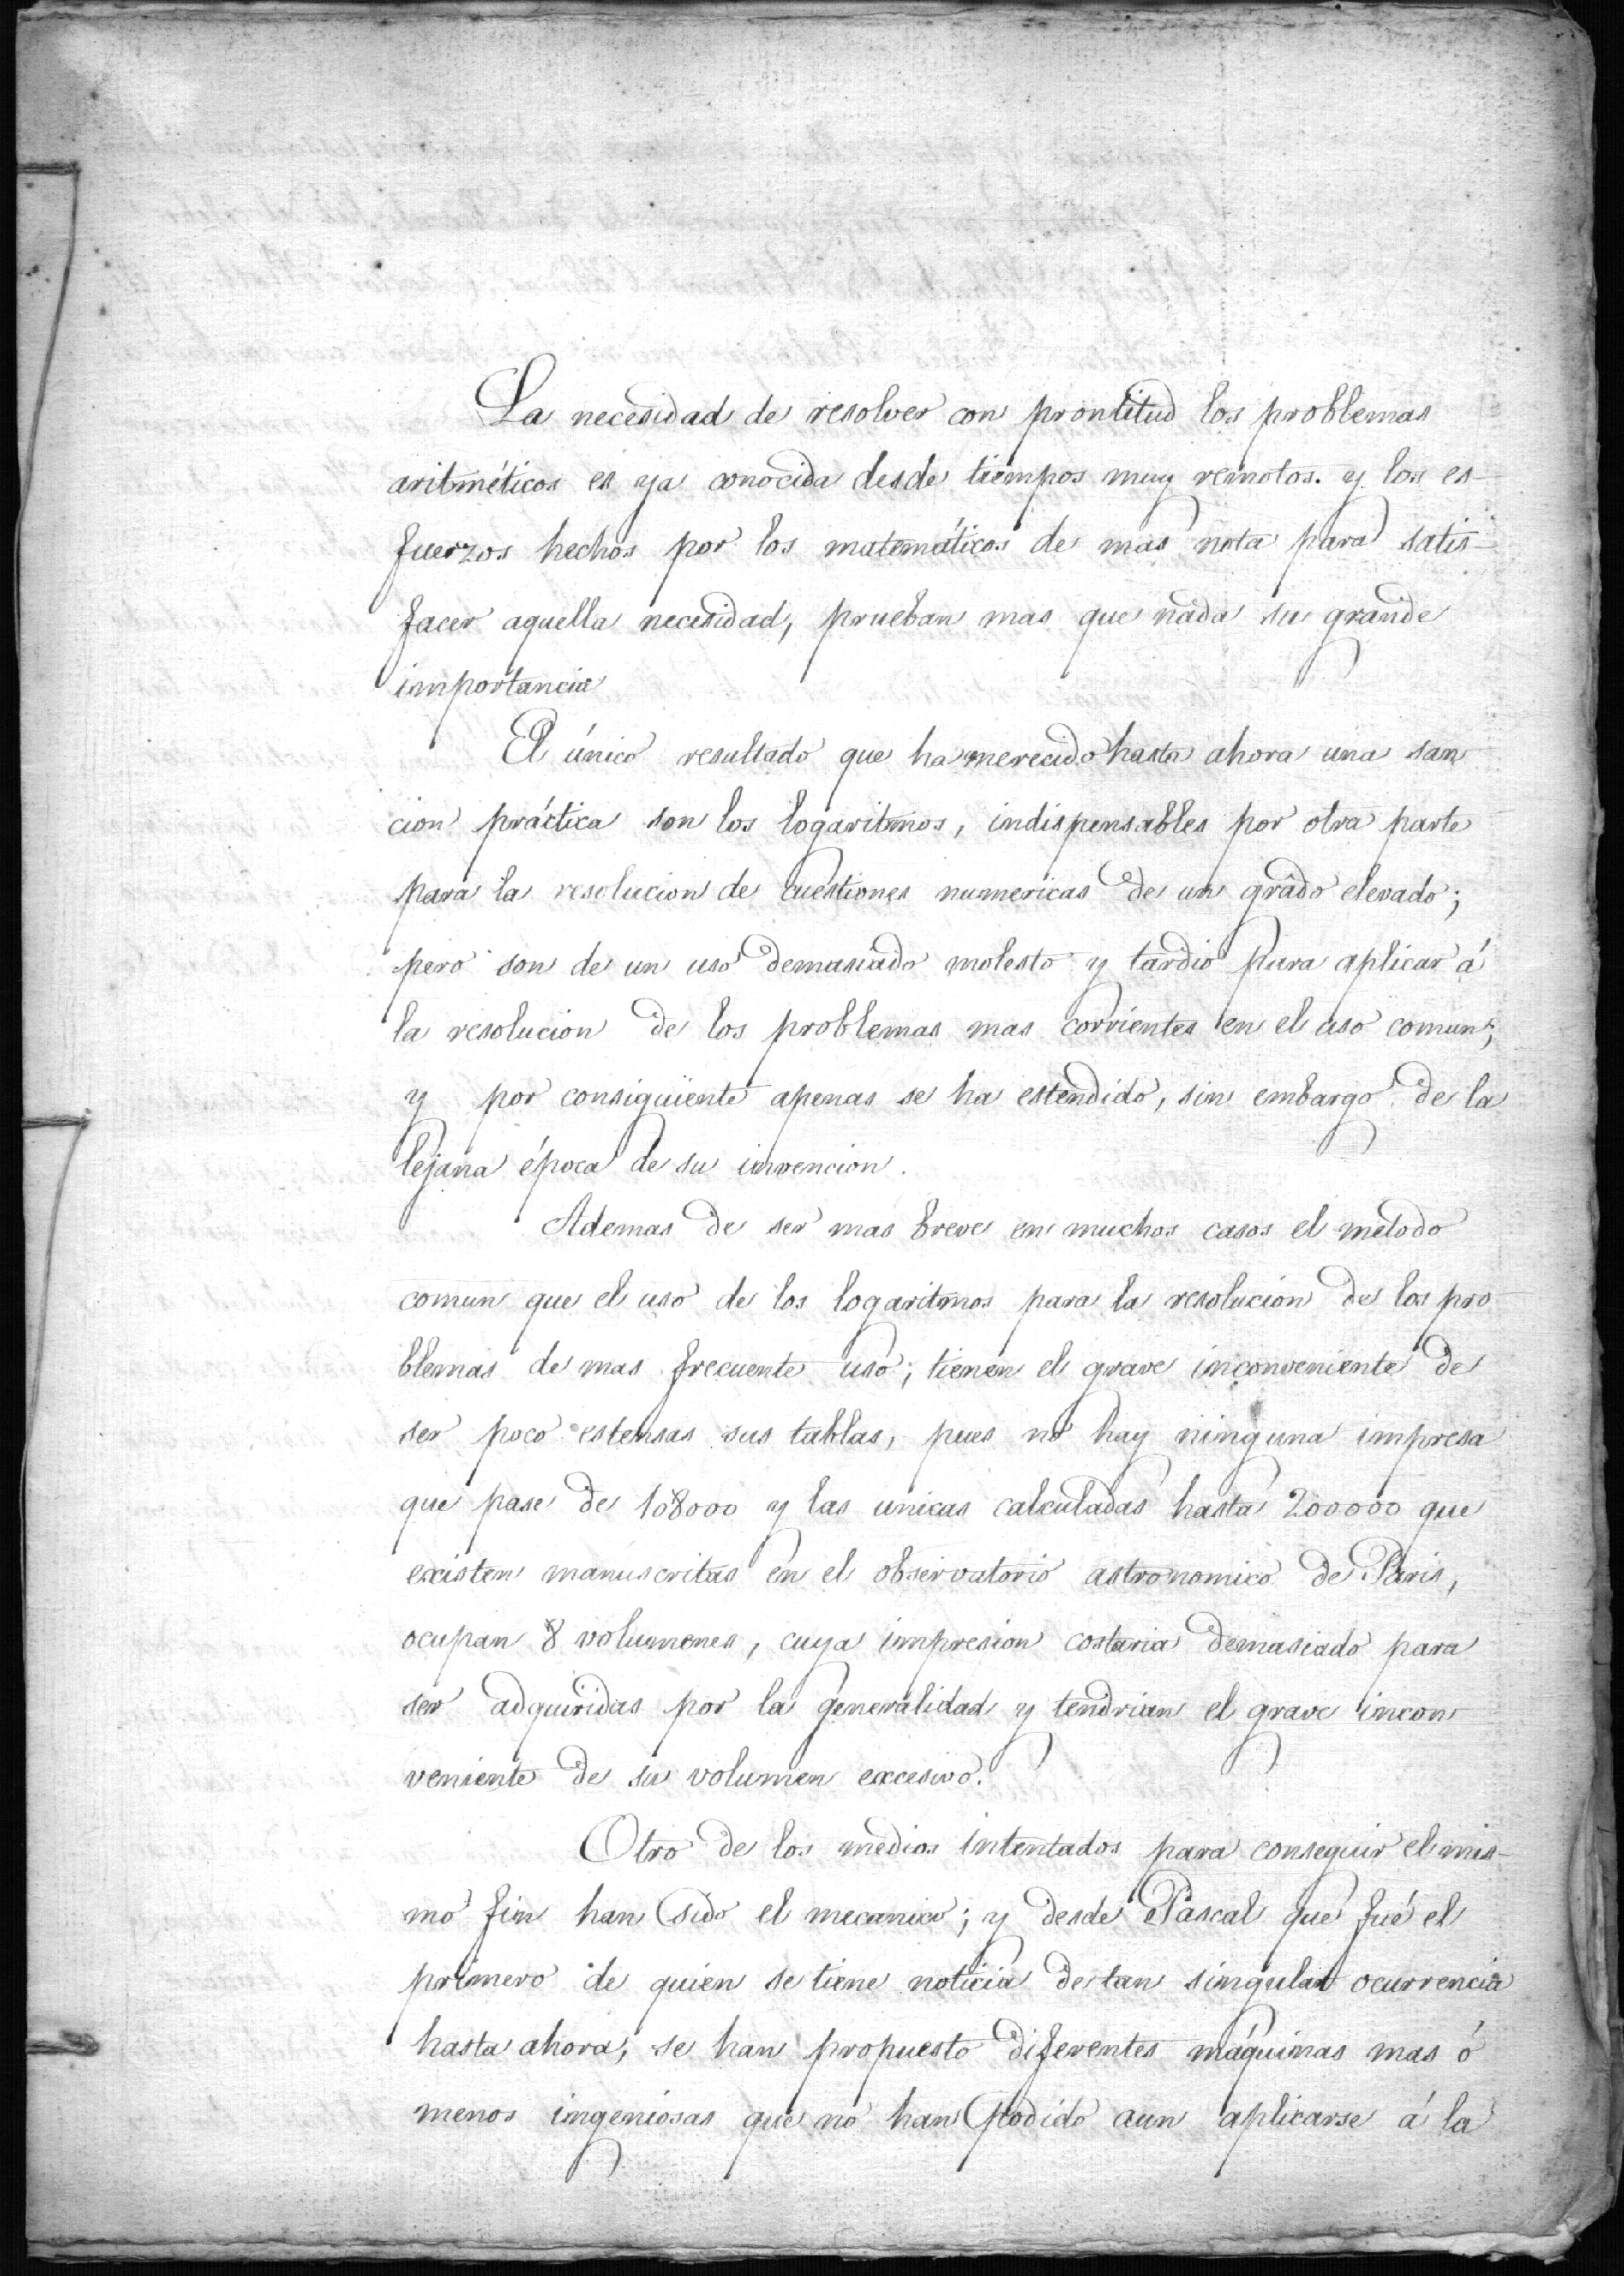 La necesidad de resolver con prontitud los problemas
aritméticos es ya conocida desde tiempos muy remotos. y los es-
fuerzos hechos por los matemáticos de mas nota para satis-
facer aquella necesidad, prueban mas que nada su grande
importancia
El único resultado que ha merecido hasta ahora una san
cion práctica son los logaritmos, indispensables por otra parte
para la resolucion de cuestiones numericas de un grado elevado;
pero son de un uso demasiado molesto y tardio para aplicar á
la resolucion de los problemas mas corrientes en el uso comun;
y por consiguiente apenas se ha estendido, sin embargo de la
lejana época de su invencion.
Ademas de ser mas breve en muchos casos el metodo
comun que el uso de los logaritmos para la resolucion de los pro
blemas de mas frecuente uso; tienen el grave inconveniente de
ser poco estensas sus tablas, pues no hay ninguna impresa
que pase de 108000 y las unicas calculadas hasta 200000 que
existen manuscritas en el observatorio astronomico de Paris,
ocupan 8 volumenes, cuya impresion costaria demasiado para
ser adquiridas por la generalidad y tendrian el grave incon
veniente de su volumen excesivo.
Otro de los medios intentados para conseguir el mis-
mo fin han sido el mecanico; y desde Pascal que fué el
primero de quien se tiene noticia de tan singular ocurrencia
hasta ahora, se han propuesto diferentes máquinas mas ó
menos ingeniosas que no han podido aun aplicarse á la